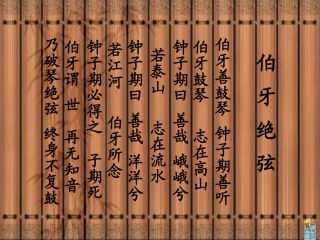 伯牙绝弦
伯牙善鼓琴 钟子期善听
伯牙鼓琴 志在高山
钟子期曰 善哉 峨峨兮
若泰山 志在流水
钟子期曰 善哉 洋洋兮
若江河 伯牙所念
钟子期必得之 子期死
伯牙谓 世 再无知音
乃破琴绝弦 终身不复鼓